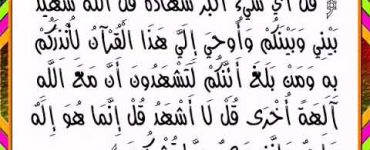 ۞ قُلْ أَيُّ شَيْءٍ أَكْبَرُ شَهَادَةً قُلِ اللَّهُ شَهِيدٌ
بَيْنِي وَبَيْنَكُمْ وَأُوحِيَ إِلَيَّ هَذَا الْقُرْآنُ لِأُنذِرَكُمْ
بِهِ وَمَنْ بَلَغَ أَئِنَّكُمْ لَتَشْهَدُونَ أَنَّ مَعَ اللَّهِ
آلِهَةً أُخْرَى قُلْ لَا أَشْهَدُ قُلْ إِنَّمَا هُوَ إِلَهٌ